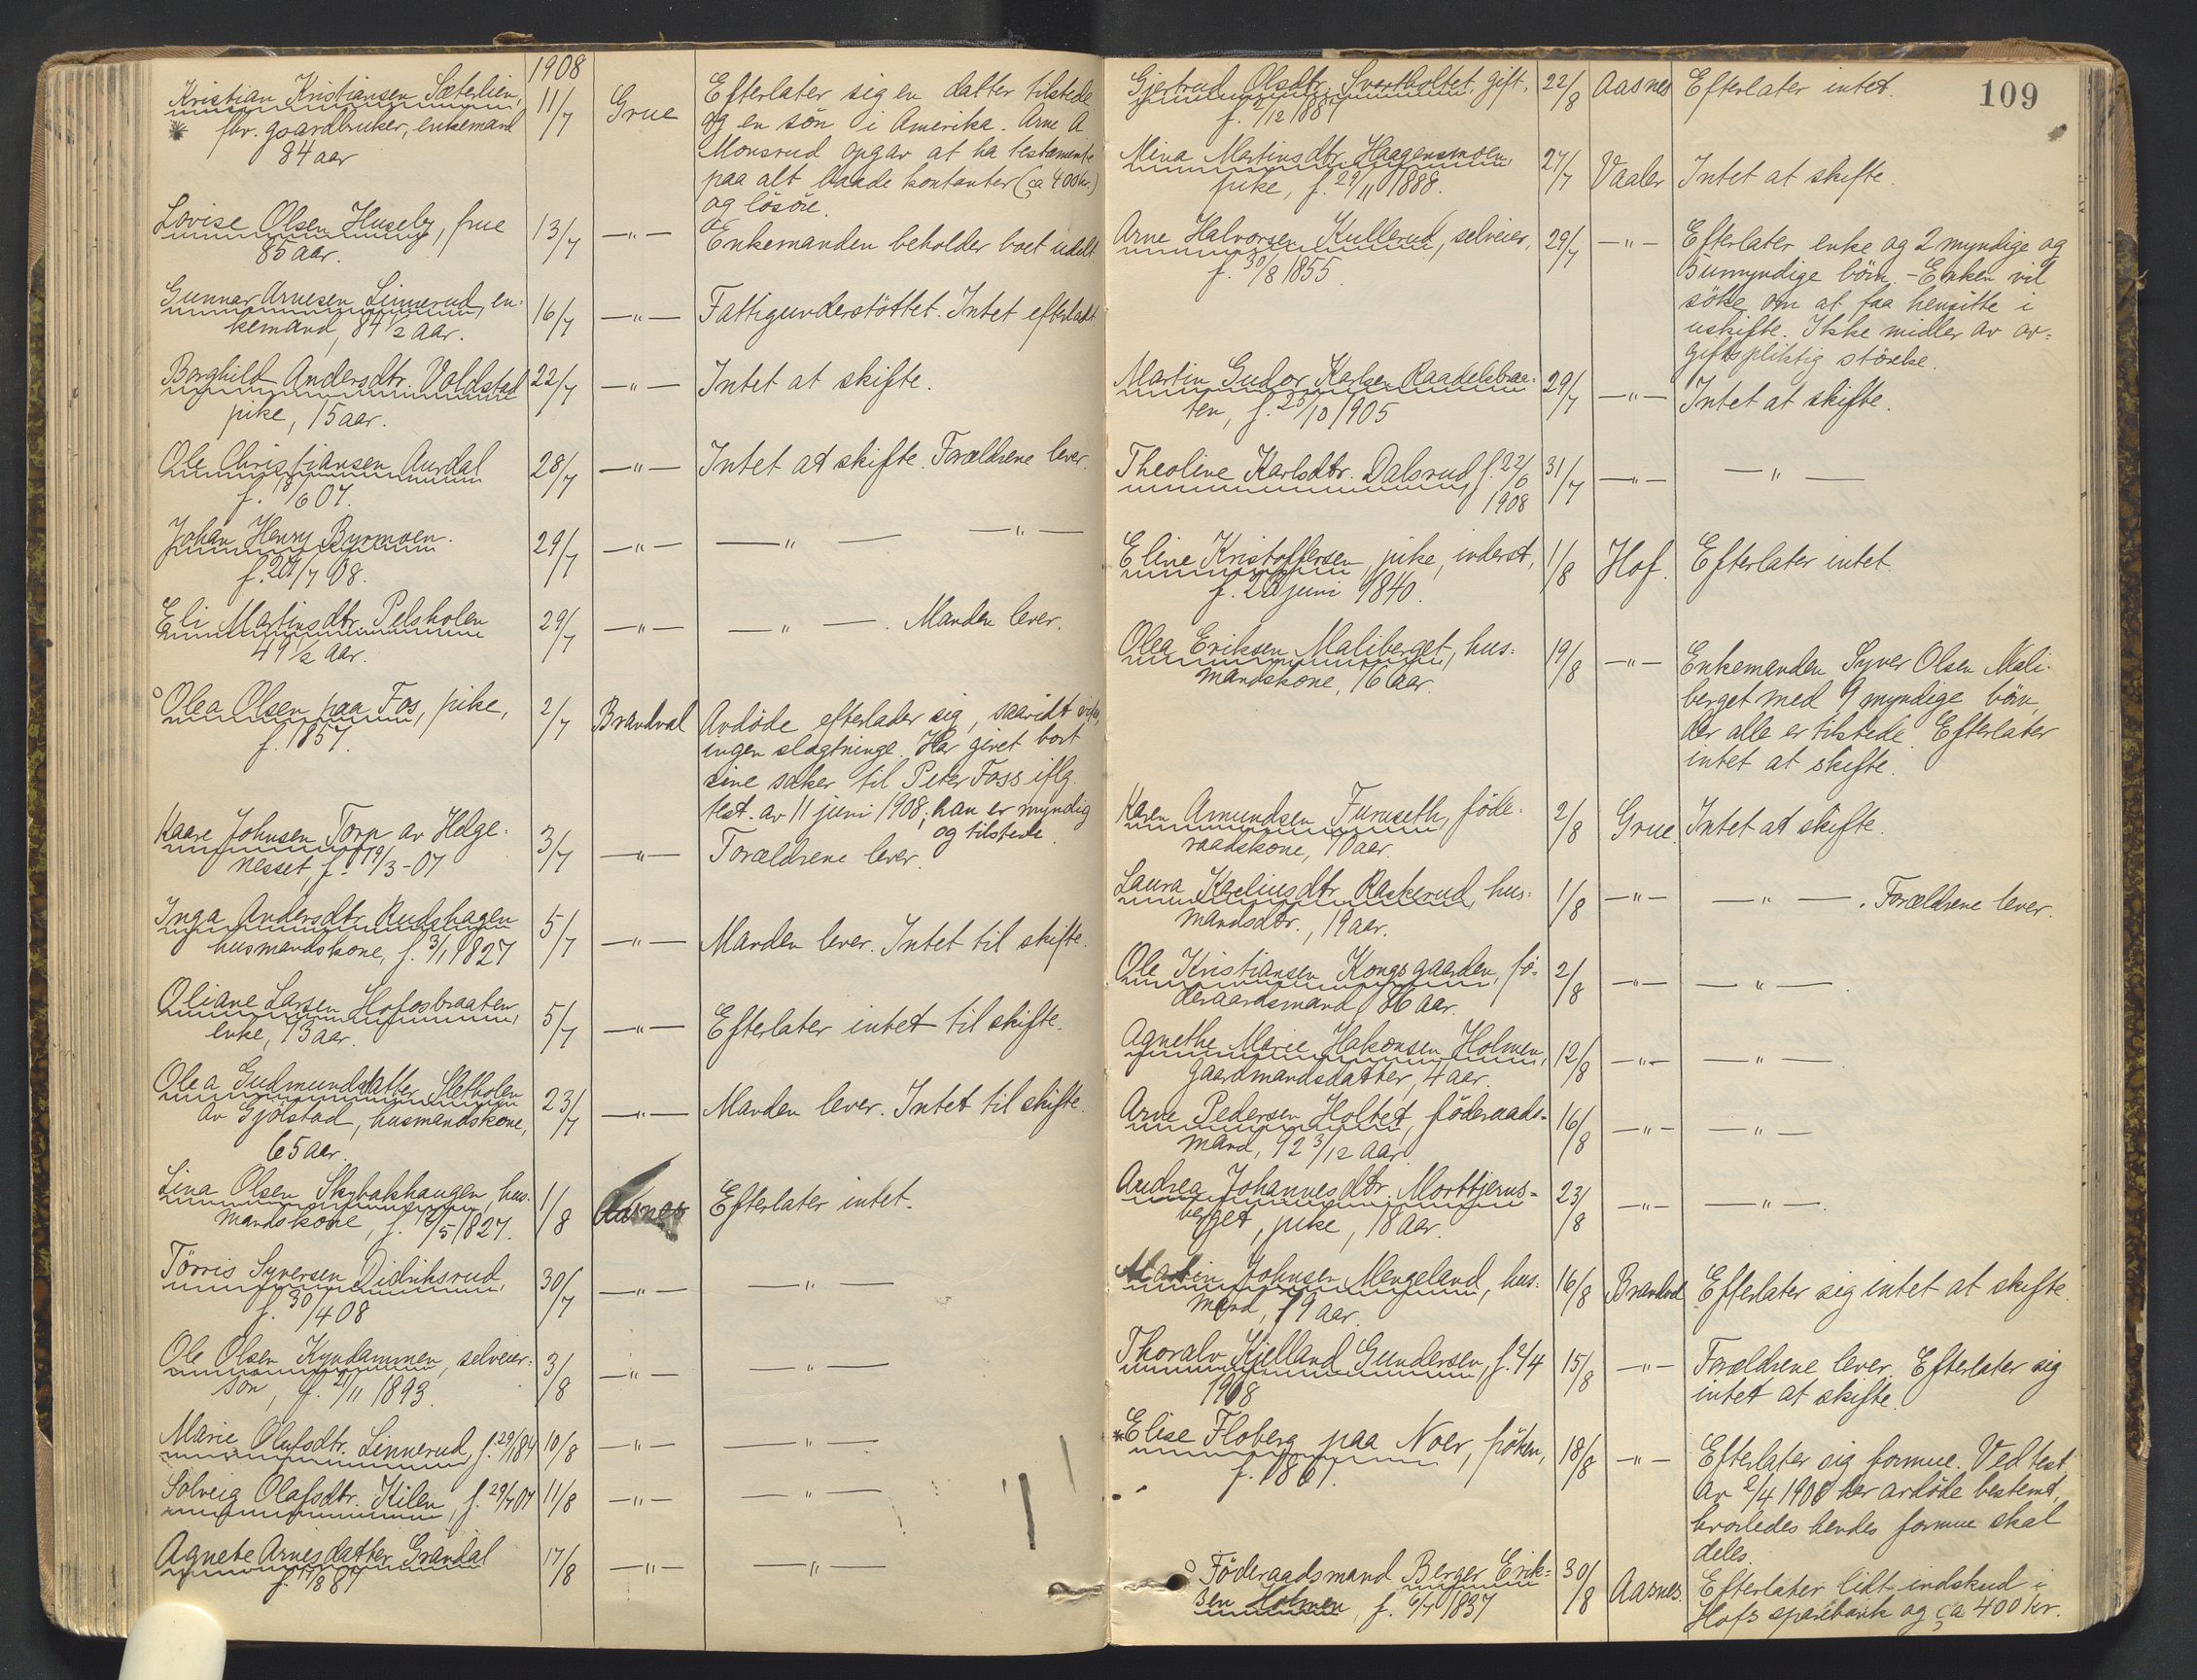 1908
Kristian Kristiansen Sæterlien, 11/7 Grue Efterlater sig en datter tilstede
* fhv. gaardbruker, enkemand og en søn i Amerika. Arne A
84 aar Monsrud opgav at ha testamente
paa alt baade kontanter (ca 400 kr.)
og løsøre.
Lovise Olsen Huseby, frue 13/7 —"— Enkemanden beholder boet udelt.
85 aar.
Gunnar Arnesen Linnerud, en- 16/7 —"— Fattigunderstøttet. Intet efterladt.
kemand, 84 1/2 aar.
Borghild Andersdtr. Voldstad 22/7 —"— Intet at skifte.
pike, 15 aar.
Ole Christiansen Aurdal 28/7 —"— Intet at skifte. Forældrene lever.
f. 18/6 07.
Johan Henry Byrmoen. 29/7 —"— —"— —"—
f. 20/7 08.
Eli Martinsdtr. Pelsholen 29/7 —"— —"—. Manden lever.
49 1/2 aar.
° Olea Olsen paa Fos, pike, 2/7 Brandval Avdøde efterlader sig, saavidt vides,
f. 1857. ingen slægtninge. Har givet bort
sine saker til Peter Foss iflg.
test. av 11 juni 1908; han er myndig
og tilstede.
Kaare Johnsen Torp av Helge- 3/7 —"— Forældrene lever.
nesset, f. 19/3-07
Inga Andersdtr. Rudshagen 5/7 —"— Manden lever. Intet til skifte.
husmandskone, f. 3/1 1827
Oliane Larsen Hofosbraaten, 5/7 —"— Efterlater intet til skifte.
enke, 73 aar.
Olea Gudmundsdatter Sletholen 23/7 —"— Manden lever. Intet til skifte.
av Gjølstad, husmandskone,
65 aar.
Lina Olsen Skybakhaugen, hus- 1/8 Aasnes Efterlater intet.
mandskone, f. 12/5 1827.
Tørris Syversen Didriksrud, 30/7 —"— —"—
f. 30/4 08
Ole Olsen Kyndammen, selveier- 3/8 —"— —"—
søn, f. 21/11 1893.
Marie Olufsdtr. Linnerud, f. 29/1 84 10/8 —"— —"—
Solveig Olafsdtr. Kilen, f. 29/7 07 11/8 —"— —"—
Agnete Arnesdatter Grandal 17/8 —"— —"—
f. 17/8 87
109
Gjertrud Olsdtr. Svartholtet, gift, 22/8 Aasnes Efterlater intet.
f. 2/12 1881
Mina Martinsdtr. Haagensmoen, 27/7 Vaaler Intet at skifte.
pike, f. 29/11 1888.
Arne Halvorsen Kullerud, selveier, 29/7 —"— Efterlater enke og 2 myndige og
f. 30/8 1855. 5 umyndige børn. - Enken vil
søke om at faa hensitte i
uskifte. Ikke midler av av-
giftspliktig størelse.
Martin Gudor Karlsen Raadelsbraa- 29/7 —"— Intet at skifte.
ten, f. 25/10 1905
Theoline Karlsdtr. Dalsrud, f. 22/6 31/7 —"— —"—
1908
Eline Kristoffersen, pike, inderst, 1/8 Hof. Efterlater intet.
f. 28 juni 1840.
Olea Eriksen Maliberget, hus- 19/8 —"— Enkemanden Syver Olsen Mali-
mandskone, 76 aar. berget med 9 myndige børn,
der alle er tilstede. Efterlater
intet at skifte.
Karen Amundsen Furuseth, føde- 2/8 Grue. Intet at skifte.
raadskone, 70 aar.
Laura Karlinsdtr. Raskerud, hus- 1/8 —"— —"—. Forældrene lever.
mandsdtr., 19 aar.
Ole Kristiansen Kongsgaarden, fø- 2/8 —"— —"—.
deraadsmand, 86 aar.
Agnethe Marie Hakonsen Holmen, 12/8 —"— —"—
gaardmandsdatter, 4 aar.
Arne Pedersen Holtet, føderaads- 16/8 —"— —"—
mand, 72 3/12 aar.
Andrea Johannesdtr. Morttjerns- 23/8 —"— —"—.
berget, pike, 18 aar.
Martin Johnsen Mengeland, hus- 16/8 Brandval Efterlater sig intet at skifte.
mand, 79 aar.
Thoralv Kjelland Gundersen, f. 2/4 15/8 —"— Forældrene lever. Efterlater sig
1908 intet at skifte.
* Elise Floberg paa Noer, frøken, 18/8 —"— Efterlater sig formue. Ved test
f. 1861. av 2/4 1908 har avdøde bestemt,
hvorledes hendes formue skal
deles.
° Føderaadsmand Berger Erik- 30/8 Aasnes. Efterlater lidt indskud i
sen Holmen, f. 6/7 1837 Hofs sparebank og ca 400 kr.